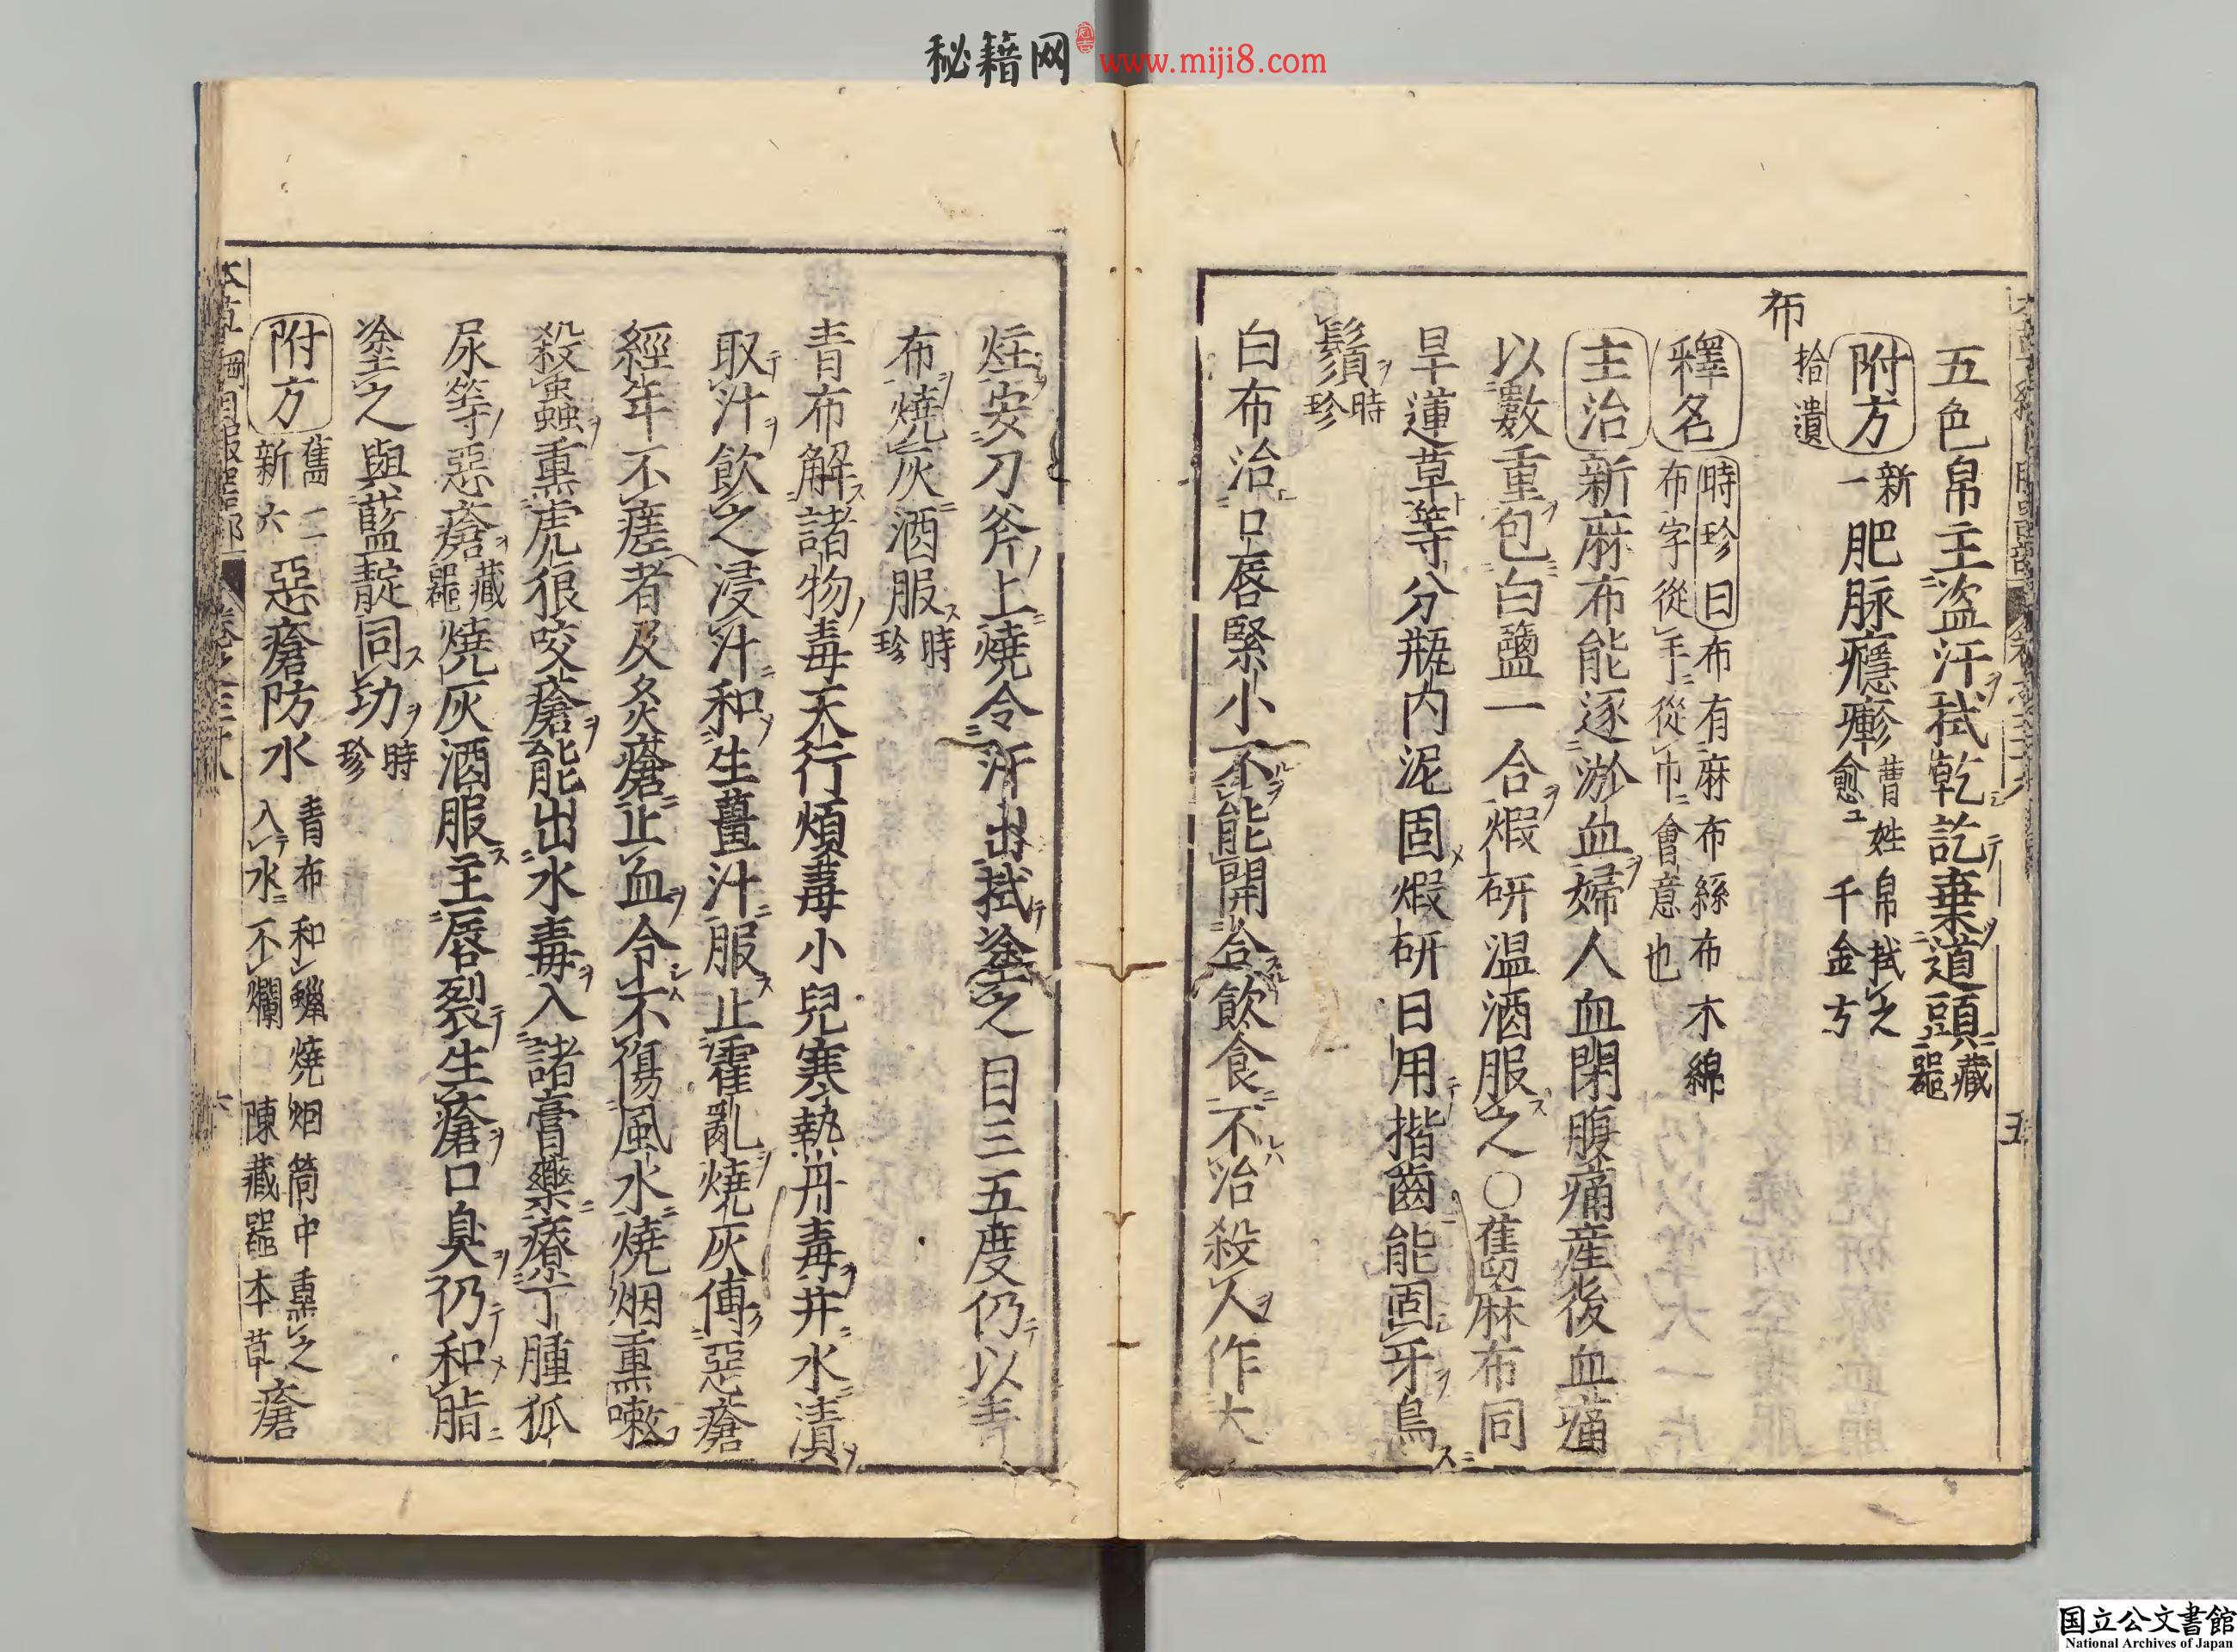 秘籍网 www.miji8.com
五色帛主盗汗拭乾訖棄道頭藏器
附方 新一 肥脉癮𤺋 曹姓帛拭之愈 千金方
布 拾遺
釋名 時珍曰 布有麻布絲布木綿布字從手從巾會意也
主治 新麻布能逐淤血婦人血閉腹痛産後血痛
以數重包白鹽一合煆研温酒服之○舊麻布同
旱蓮草等分瓶内泥固煆研日用揩齒能固牙烏
鬚時珍
白布治口唇緊小不能開合飲食不治殺人作大
炷安刀斧上燒令汗出拭塗之日三五度仍以青
布燒灰酒服時珍
青布解諸物毒天行煩毒小兒寒熱丹毒井水漬
取汁飲之浸汁和生薑汁服止霍亂燒灰傅惡瘡
經年不瘥者及灸瘡止血令不傷風水燒烟熏嗽
殺蟲熏虎狼咬瘡能出水毒入諸膏藥療丁腫狐
尿等惡瘡藏器燒灰酒服主唇裂生瘡口臭仍和脂
塗之與藍靛同功時珍
附方 舊二新六 惡瘡防水 青布和蠟燒烟筒中熏之入水不爛口陳藏器本草 瘡
本草綱目服器部 卷之三十八 六
五
国立公文書館
National Archives of Japan